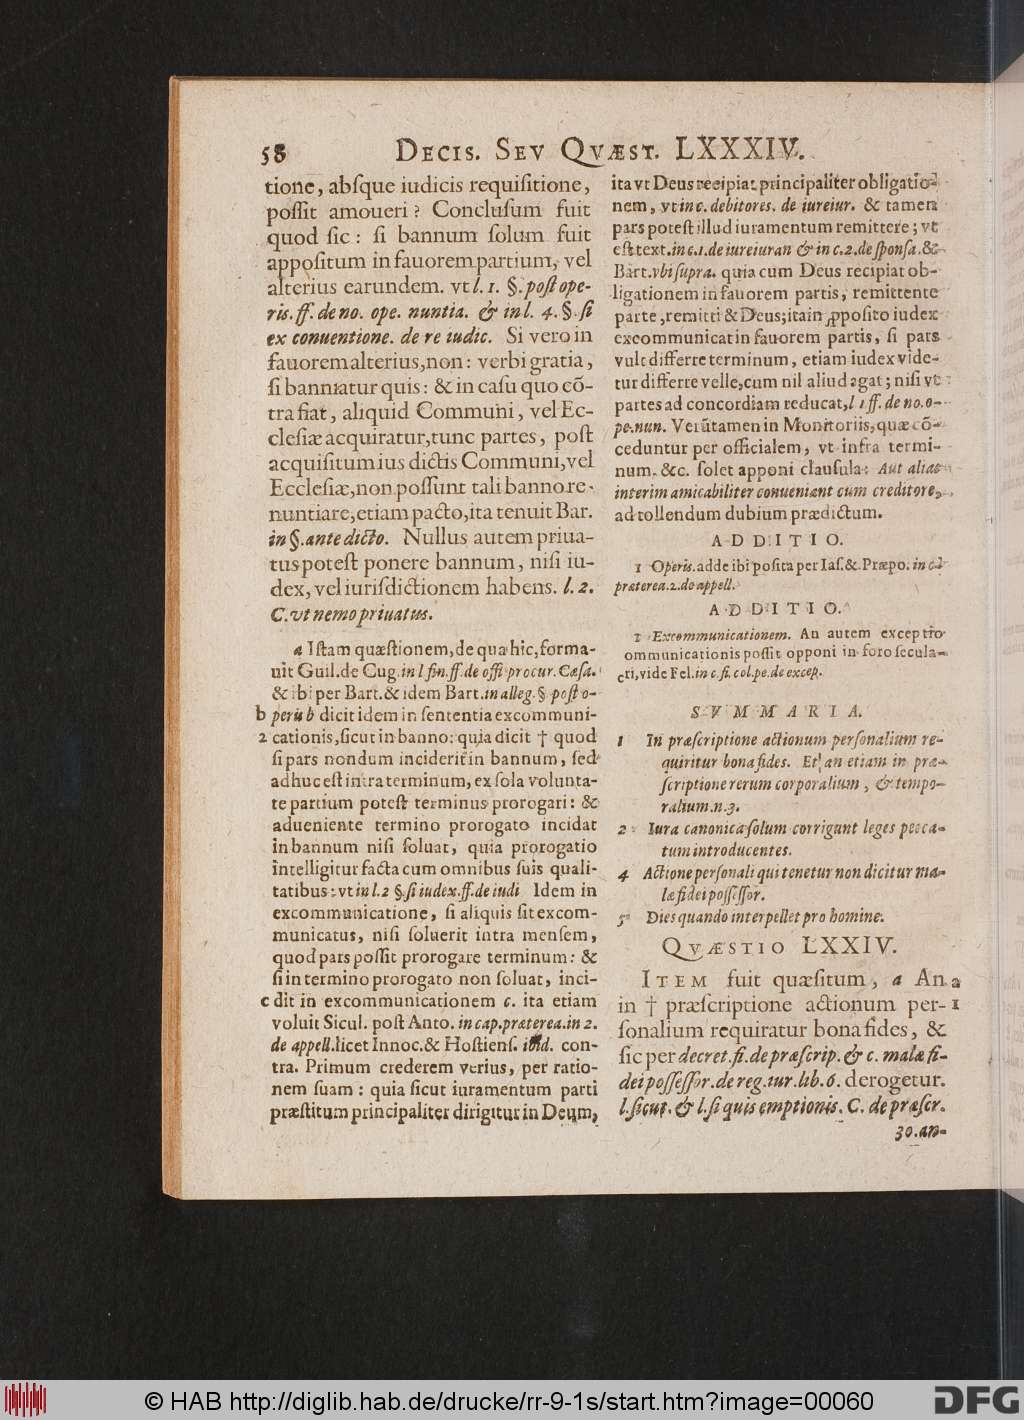 58 DECIS. SEV QVÆST. LXXXIV.
tione, abſque iudicis requiſitione,
poſſit amoueri? Concluſum fuit
quod ſic: ſi bannum ſolum fuit
appoſitum in fauorem partium, vel
alterius earundem. vt l. 1. §. poſt ope-
ris. ff. de no. ope. nuntia. & in l. 4. §. ſi
ex conuentione. de re iudic. Si vero in
fauorem alterius, non: verbi gratia,
ſi banniatur quis: & in caſu quo cō-
tra fiat, aliquid Communi, vel Ec-
cleſiæ acquiratur, tunc partes, poſt
acquiſitum ius dictis Communi, vel
Eccleſiæ, non poſſunt tali banno re-
nuntiare, etiam pacto, ita tenuit Bar.
in §. ante dicto. Nullus autem priua-
tus poteſt ponere bannum, niſi iu-
dex, vel iuriſdictionem habens. l. 2.
C. vt nemo priuatus.
a Iſtam quæſtionem, de qua hic, forma-
uit Guil. de Cug. in l fin. ff. de offi procur. Cæſa.
& ibi per Bart. & idem Bart. in alleg. § poſt o-
b peris b dicit idem in ſententia excommuni-
2 cationis, ſicut in banno: quia dicit † quod
ſi pars nondum inciderit in bannum, ſed
adhuc eſt intra terminum, ex ſola volunta-
te partium poteſt terminus prorogari: &
adueniente termino prorogato incidat
in bannum niſi ſoluat, quia prorogatio
intelligitur facta cum omnibus ſuis quali-
tatibus: vt in l. 2 §. ſi iudex. ff. de iudi Idem in
excommunicatione, ſi aliquis ſit excom-
municatus, niſi ſoluerit intra menſem,
quod pars poſſit prorogare terminum: &
ſi in termino prorogato non ſoluat, inci-
c dit in excommunicationem c. ita etiam
voluit Sicul. poſt Anto. in cap. præterea. in 2.
de appell. licet Innoc. & Hoſtienſ. ibid. con-
tra. Primum crederem verius, per ratio-
nem ſuam: quia ſicut iuramentum parti
præſtitum principaliter dirigitur in Deum,
ita vt Deus recipiat principaliter obligatio-
nem, vt in c. debitores. de iureiur. & tamen
pars poteſt illud iuramentum remittere; vt
eſt text. in c. 1. de iureiuran & in c. 2. de ſponſa. &
Bart. vbi ſupra. quia cum Deus recipiat ob-
ligationem in fauorem partis, remittente
parte, remitti & Deus; ita in ꝓpoſito iudex
excommunicat in fauorem partis, ſi pars
vult differre terminum, etiam iudex vide-
tur differre velle, cum nil aliud agat; niſi vt
partes ad concordiam reducat, l 1 ff. de no. o-
pe. nun. Verūtamen in Monitoriis, quæ cō-
ceduntur per officialem, vt infra termi-
num. &c. ſolet apponi clauſula: Aut alias
interim amicabiliter conueniant cum creditore,
ad tollendum dubium prædictum.
ADDITIO.
1 Operis. adde ibi poſita per Iaſ. & Præpo. in c.
præterea. 2. de appell.
ADDITIO.
2 Excommunicationem. An autem exceptio
ommunicationis poſſit opponi in foro ſecula-
ri, vide Fel. in c. ſi. col. pe. de excep.
SVMMARIA.
1 In præſcriptione actionum perſonalium re-
quiritur bona fides. Et an etiam in præ-
ſcriptione rerum corporalium, & tempo-
ralium. n. 3.
2 Iura canonica ſolum corrigunt leges pecca-
tum introducentes.
4 Actione perſonali qui tenetur non dicitur ma-
læ fidei poſſeſſor.
5 Dies quando interpellet pro homine.
QVÆSTIO LXXIV.
ITEM fuit quæſitum, a An a
in † præſcriptione actionum per- 1
ſonalium requiratur bona fides, &
ſic per decret. fi. de præſcrip. & c. malæ fi-
dei poſſeſſor. de reg. iur. lib. 6. derogetur.
l. ſicut. & l. ſi quis emptionis. C. de præſcr.
30. an-
© HAB http://diglib.hab.de/drucke/rr-9-1s/start.htm?image=00060
DFG